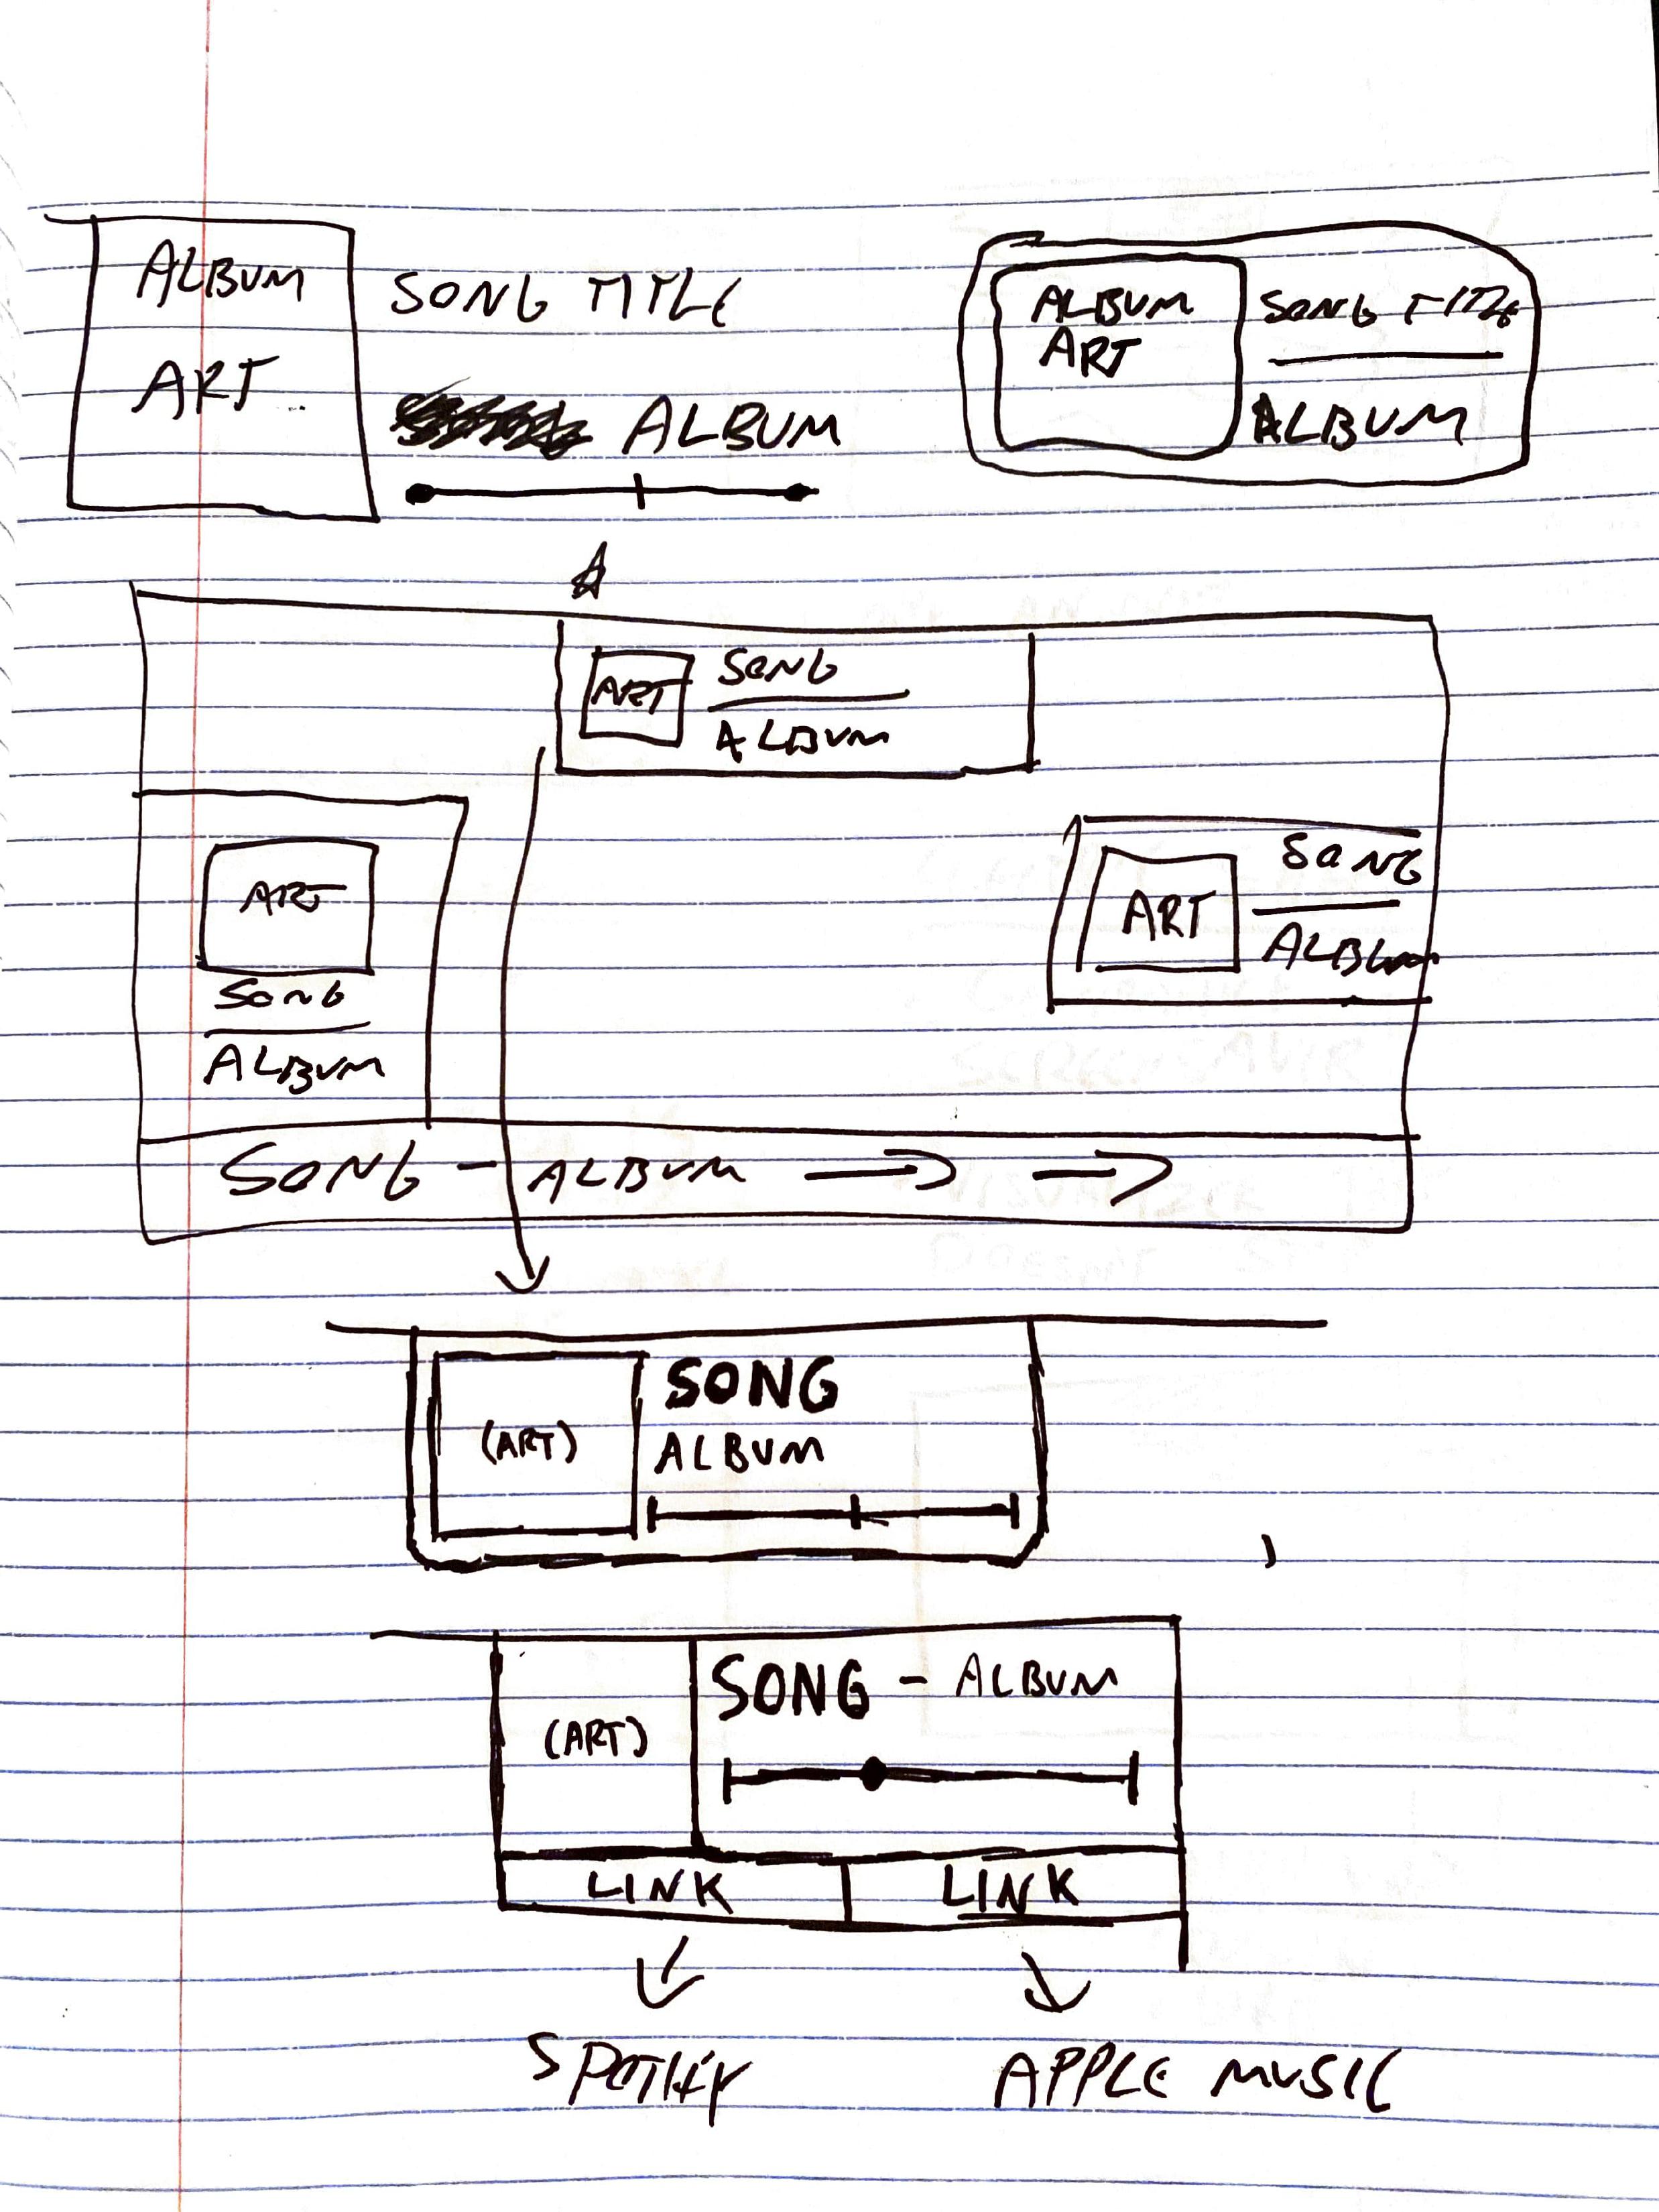 ALBUM
ART
SONG TITLE
ALBUM
ALBUM
ART
SONG TITLE
ALBUM
ART
SONG
ALBUM
ART
SONG
ALBUM
ART
SONG
ALBUM
SONG - ALBUM
(ART)
SONG
ALBUM
(ART)
SONG - ALBUM
LINK
LINK
SPOTIFY
APPLE MUSIC